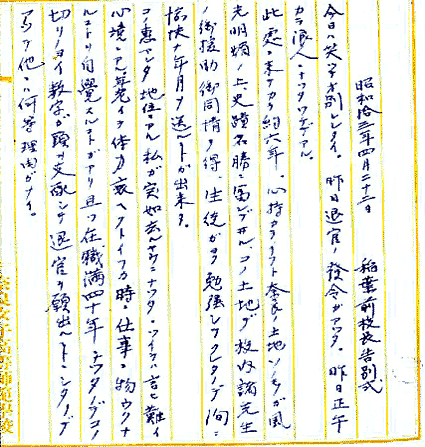 昭和拾三年四月二十二日　稲葉前校長告別式
今日ハオ別レシタイ。昨日退官ノ発令ガアッタ。昨日正午
カラ浪人ニナッタワケデアル。
此処ニ来テカラ約六年、心持カライフト奈良ノ土地ソノモノガ風
光明媚ノ上史蹟名勝ニ富ンデヰル、コノ土地デ校内諸先生
ノ御援助御同情ヲ得、生徒ガヨク勉強シテクレタノデ洵ニ
愉快ナ年月ヲ送ルコトガ出来タ。
コノ恵マレタ地位ニアル私ガ突如去ルヤウニナッタ、ツイテハ言ヒ難イ
心境ニアル。年老イテ体力ガ衰ヘタトイフカ時ニ仕事ニ物ウクナ
ルコトヲ自覚スルコトガアリ且ツ在職満四十年ニナッタノデコノ
切リノヨイ数字ガ頭ヲ支配シテ退官ヲ願出ルコトニシタノデ
アッテ他ニハ何等理由ガナイ。
奈良女子高等師範学校